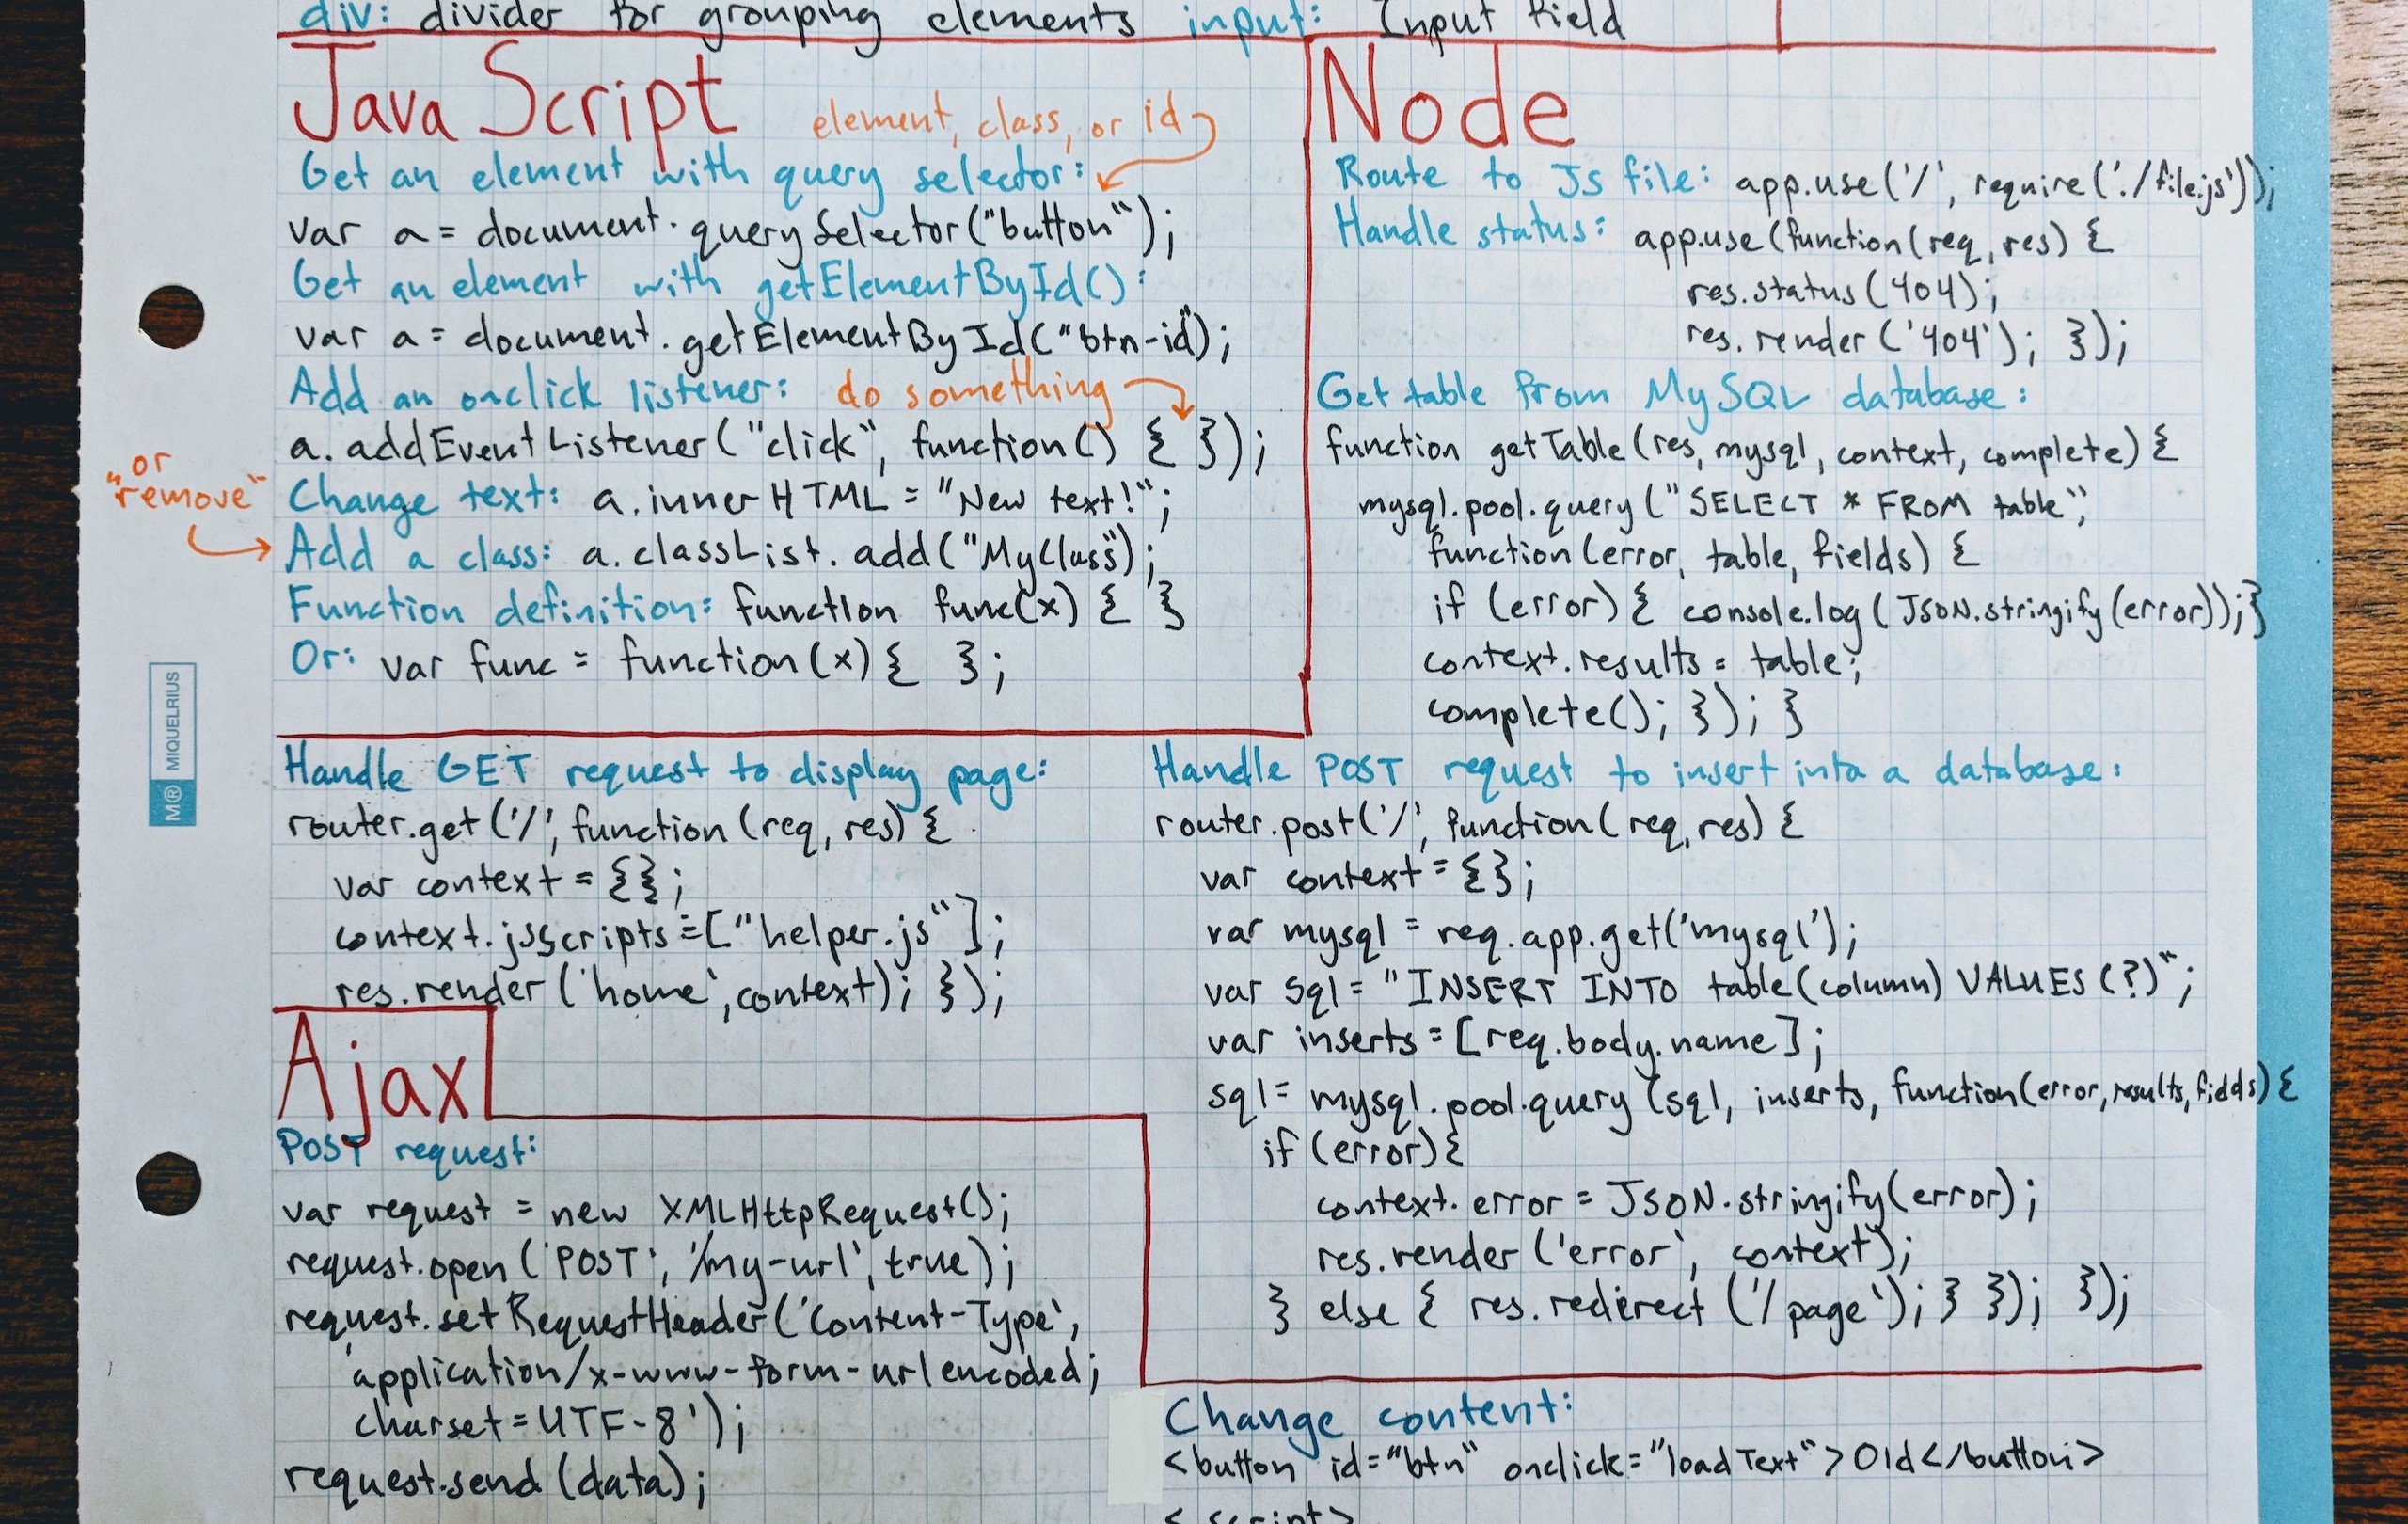 div: divider for grouping elements input: Input field
JavaScript
element, class, or id
Get an element with query selector:
var a = document.querySelector("button");
Get an element with getElementById():
var a = document.getElementById("btn-id");
Add an onclick listener: do something
a.addEventListener("click", function() { });
"or
remove"
Change text: a.innerHTML = "New text!";
Add a class: a.classList.add("MyClass");
Function definition: function func(x) { }
Or: var func = function(x) { };
Node
Route to JS file: app.use('/', require('./file.js'));
Handle status: app.use(function(req, res) {
res.status(404);
res.render('404'); });
Get table from MySQL database:
function getTable(res, mysql, context, complete) {
mysql.pool.query("SELECT * FROM table",
function(error, table, fields) {
if (error) { console.log(JSON.stringify(error)); }
context.results = table;
complete(); }); }
M® MIQUELRIUS
Handle GET request to display page:
router.get('/', function(req, res) {
var context = {};
context.jsscripts = ["helper.js"];
res.render('home', context); });
Handle POST request to insert into a database:
router.post('/', function(req, res) {
var context = {};
var mysql = req.app.get('mysql');
var sql = "INSERT INTO table(column) VALUES (?)";
var inserts = [req.body.name];
sql = mysql.pool.query(sql, inserts, function(error, results, fields) {
if (error) {
context.error = JSON.stringify(error);
res.render('error', context);
} else { res.redirect('/page'); } }); });
Ajax
POST request:
var request = new XMLHttpRequest();
request.open('POST', '/my-url', true);
request.setRequestHeader('Content-Type',
'application/x-www-form-urlencoded;
charset=UTF-8');
request.send(data);
Change content:
<button id="btn" onclick="loadText">Old</button>
<script>